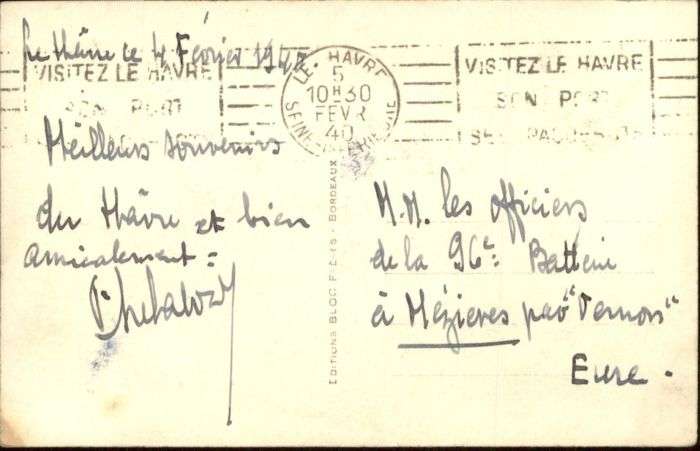 Le Hâvre ce 4 Février 194
VISITEZ LE HAVRE
SON PORT
LE HAVRE
5
10H30
FEVR
40
SEINE
VISITEZ LE HAVRE
SON PORT
SES PAQUEBOTS
Meilleurs souvenirs
du Hâvre et bien
amicalement =
EDITIONS BLOC FRERES - BORDEAUX
M.M. les officiers
de la 96e: Batterie
à Mézières par "Vernon"
Eure.